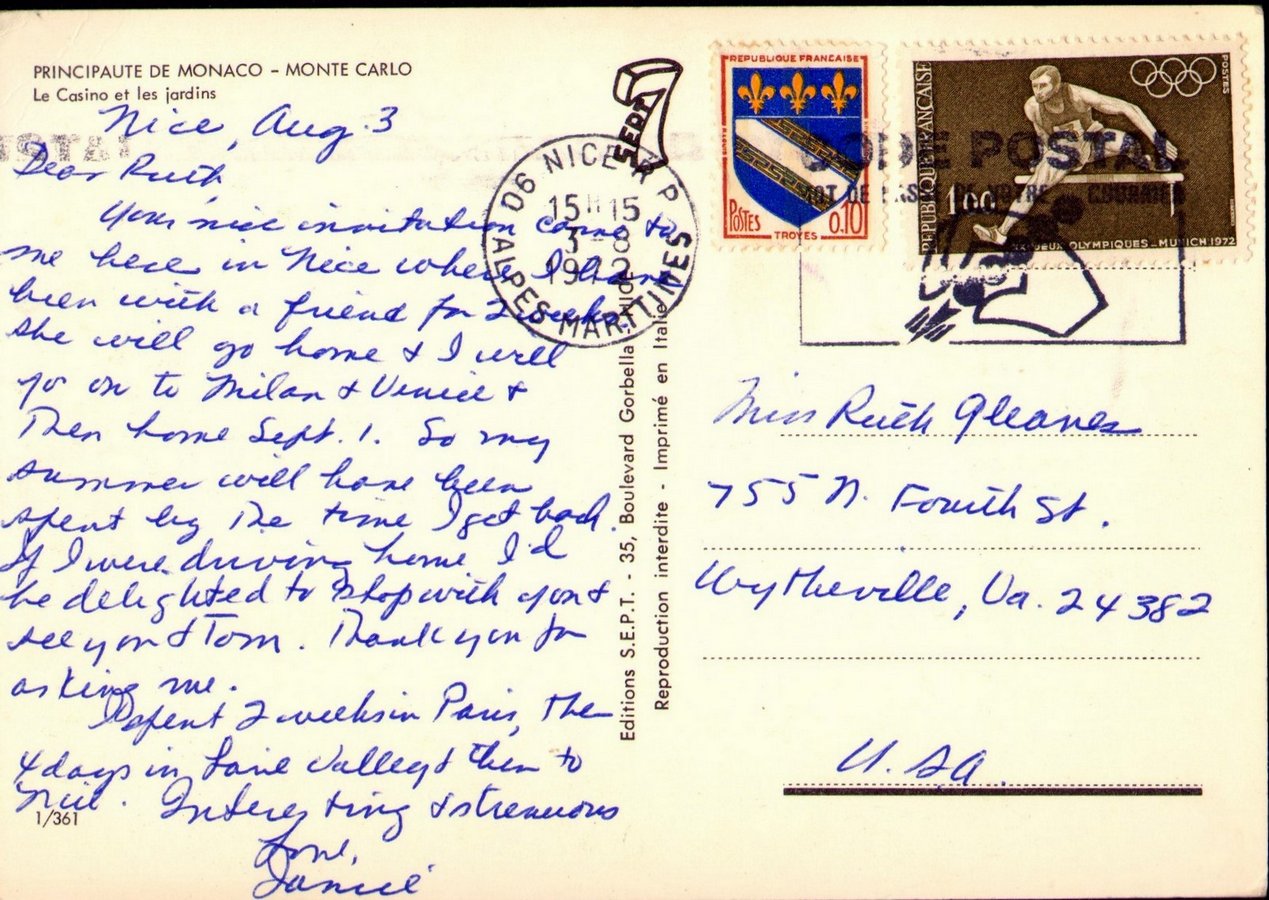 PRINCIPAUTE DE MONACO – MONTE CARLO
Le Casino et les jardins
Nice, Aug 3
Dear Ruth,
Your nice invitation came to
me here in Nice where I have
been with a friend for 2 weeks.
She will go home & I will
go on to Milan & Venice &
Then home Sept. 1. So my
summer will have been
spent by The time I get back.
If I were driving home I'd
be delighted to stop with you &
see you & Tom. Thank you for
asking me.
I spent 2 weeks in Paris, The
4 days in Loire Valley & then to
Nice. Interesting & strenuous
Love,
Janice
1/361
Editions S.E.P.T. - 35, Boulevard Gorbella NICE
Reproduction interdite - Imprimé en Italie
SEPT
NICE R P
15H15
3-8
1972
06 ALPES MARITIMES
REPUBLIQUE FRANCAISE
POSTES
0.10
TROYES
REPUBLIQUE FRANÇAISE
POSTES
1,00
XX. JEUX OLYMPIQUES - MUNICH 1972
CODE POSTAL
MOT DE PASSE DE VOTRE COURRIER
Miss Ruth Gleaves
755 N. Fourth St.
Wytheville, Va. 24382
U.SA.